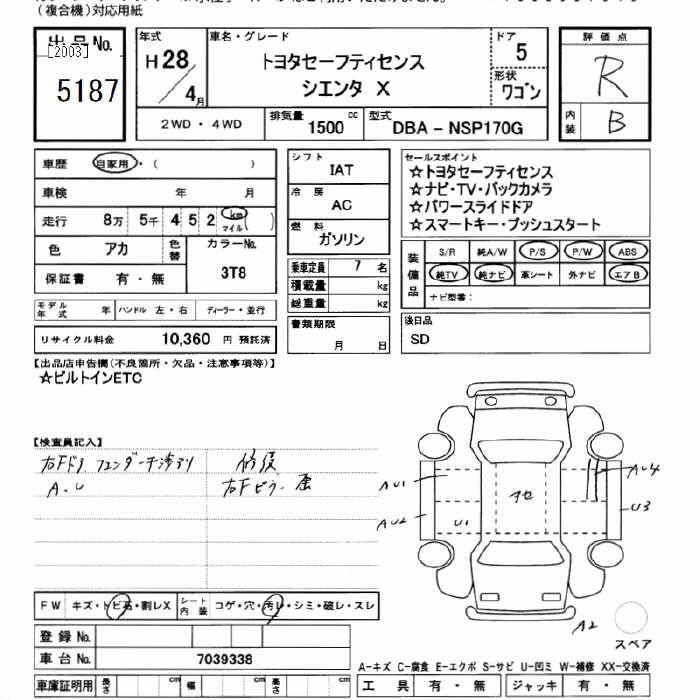 （複合機）対応用紙
出品No.
[2003]
5187
年式
H28
/4月
車名・グレード
トヨタセーフティセンス
シエンタ X
ドア
5
形状
ワゴン
2WD ・ 4WD
排気量
1500 cc
型式
DBA - NSP170G
評価点
R
内装
B
車歴 自家用・( )
車検 年 月
走行 8万 5千 4 5 2 km マイル ( )
色 アカ 色替
カラーNo.
3T8
保証書 有・無
モデル年式 年
ハンドル 左・右
ディーラー・並行
リサイクル料金 10,360 円 預託済
シフト
IAT
冷房
AC
燃料
ガソリン
乗車定員 7 名
積載量 kg
総重量 kg
書類期限
月 日
セールスポイント
☆トヨタセーフティセンス
☆ナビ・TV・バックカメラ
☆パワースライドドア
☆スマートキー・プッシュスタート
装備品
S/R 純A/W P/S P/W ABS
純TV 純ナビ 革シート 外ナビ エアB
ナビ型番：
後日品
SD
【出品店申告欄（不良箇所・欠品・注意事項等）】
☆ビルトインETC
【検査員記入】
右Fドア フェンダーチ滲アリ
A.U
修復
右Fピラー 歪
AU1
AU2
U1
AU4
U3
A2
スペア
FW キズ・トビ石・割レX
シート内装 コゲ・穴・汚レ・シミ・破レ・スレ
登録No.
車台No. 7039338
車庫証明用 長さ cm 幅 cm 高さ cm
A-キズ C-腐食 E-エクボ S-サビ U-凹ミ W-補修 XX-交換済
工具 有・無 ジャッキ 有・無